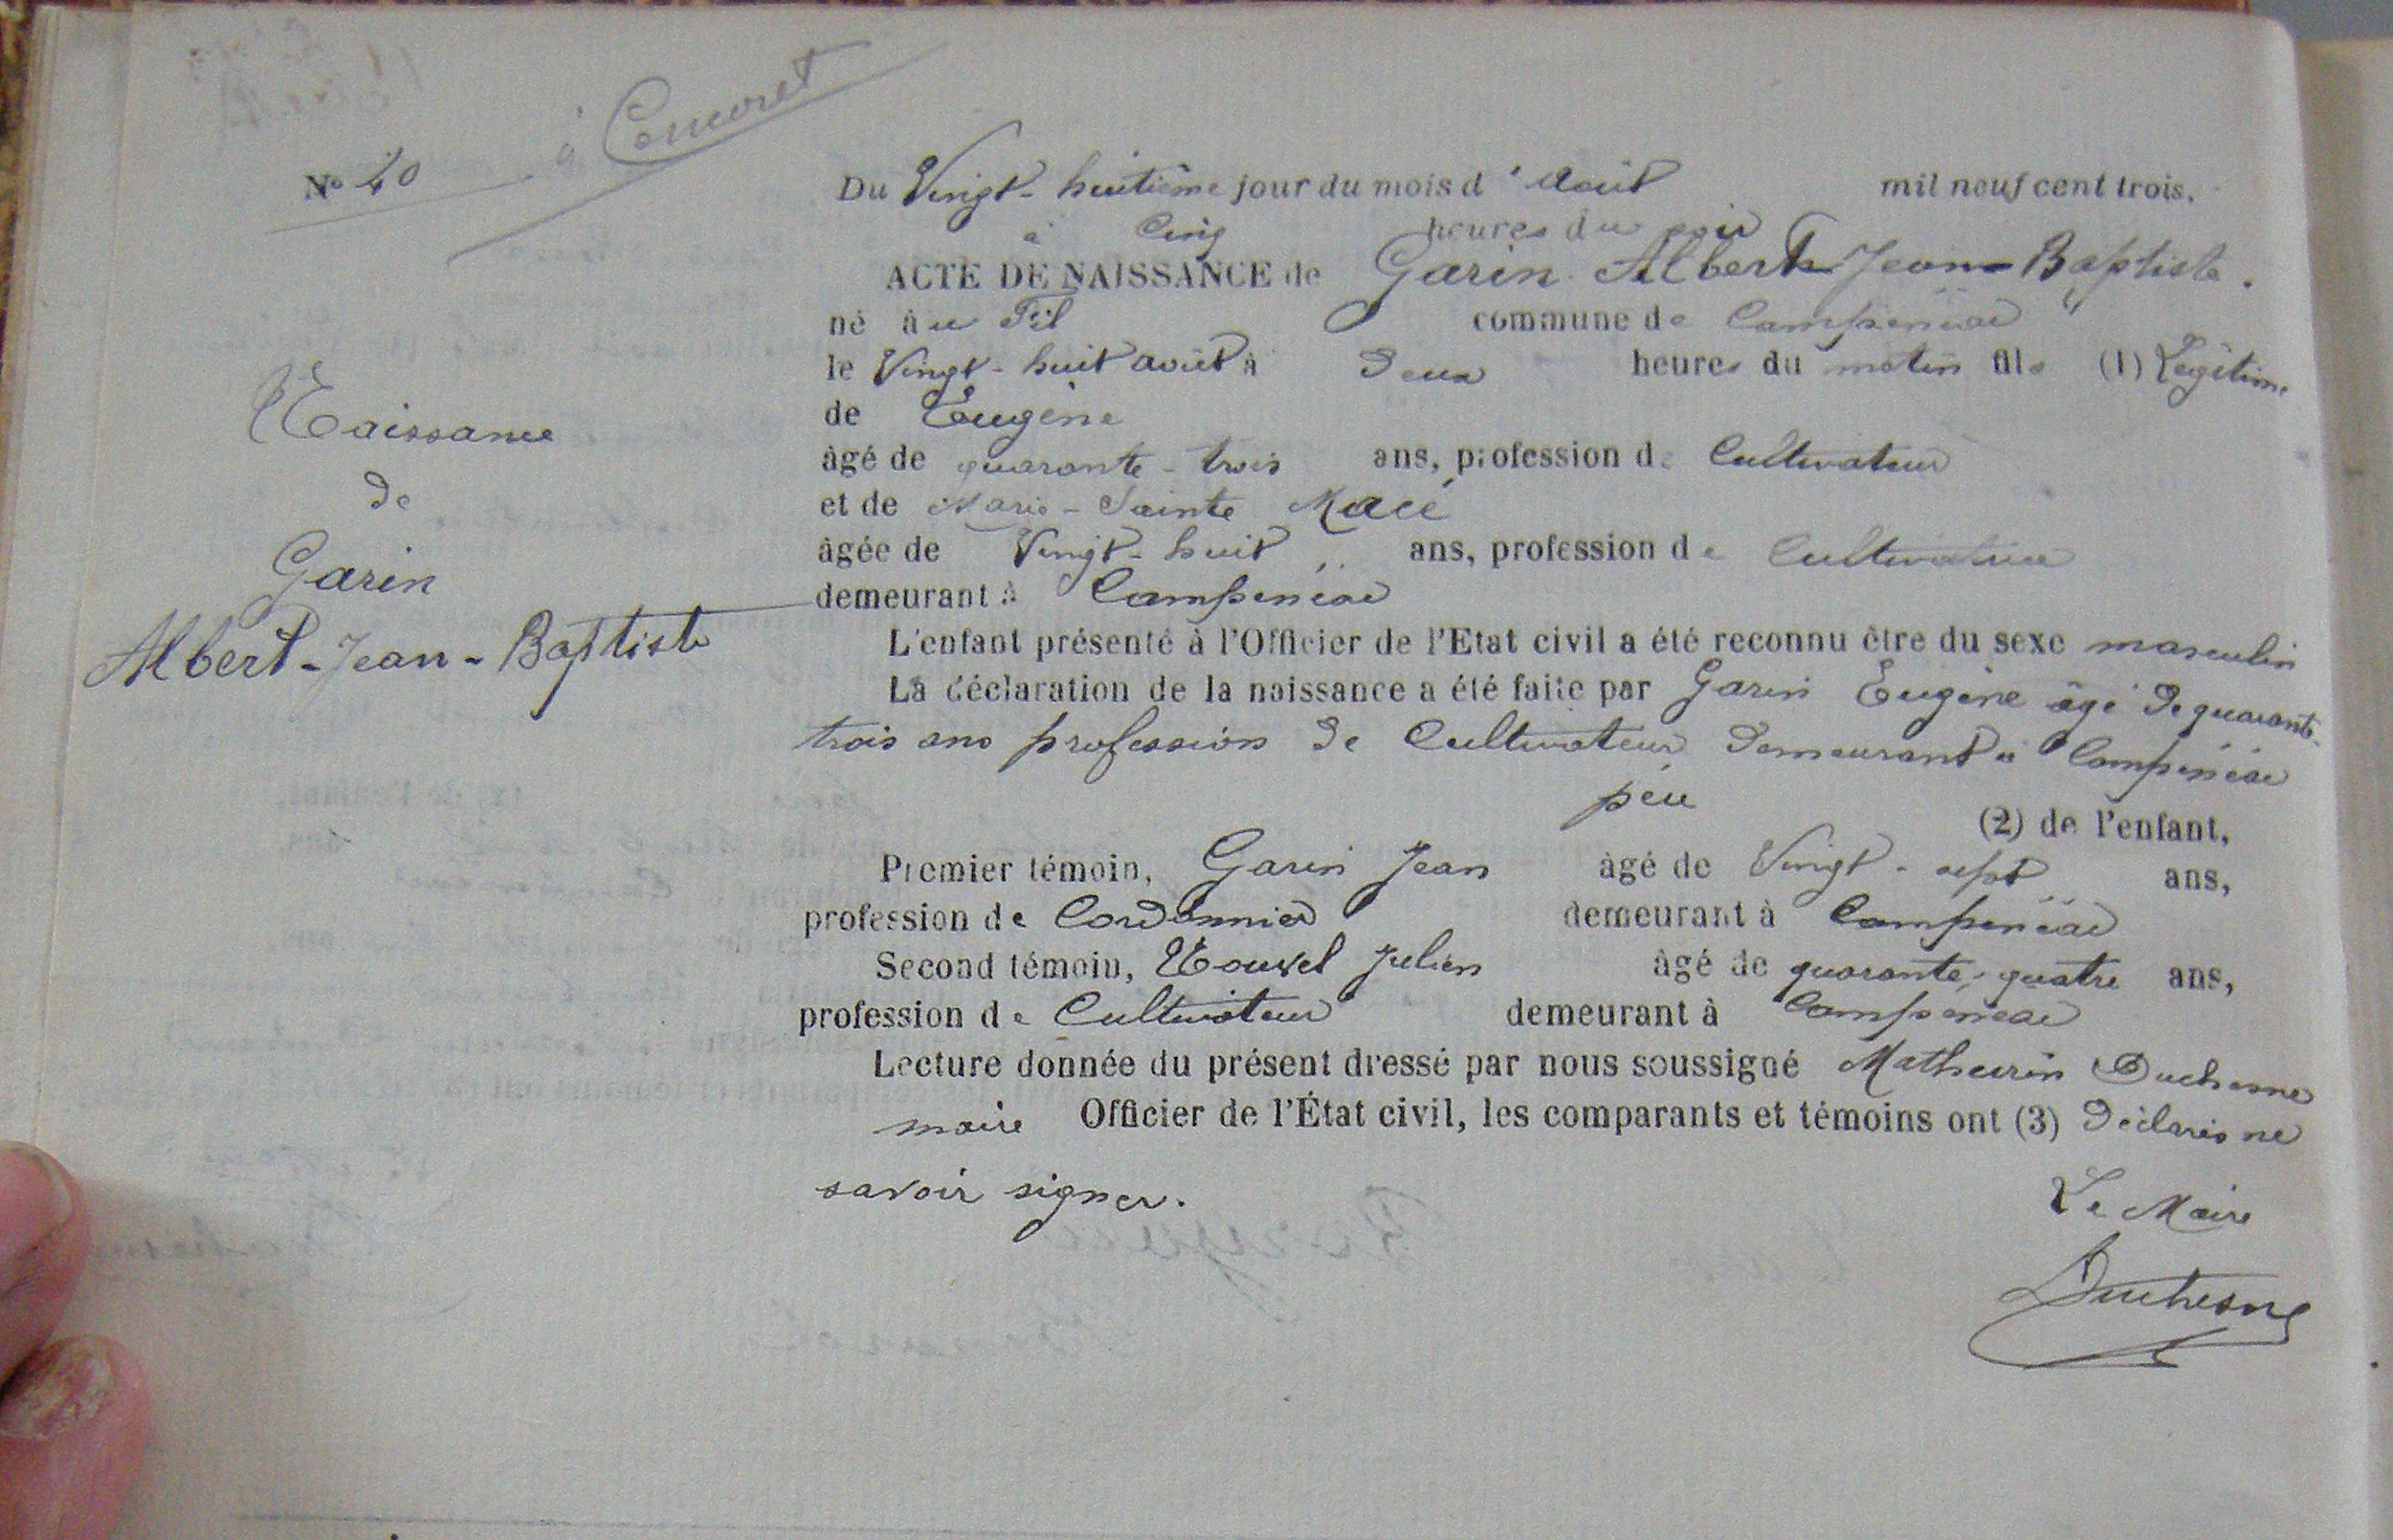 N° 40
à
Du Vingt-huitième jour du mois d'Août mil neuf cent trois.
à Cinq heures du soir
ACTE DE NAISSANCE de Garin Albert Jean Baptiste.
né à au Fil commune de Campénéac
le Vingt-huit août à Deux heures du matin fils (1) Légitime
de Eugène
âgé de quarante-trois ans, profession de Cultivateur
et de Marie-Sainte Macé
âgée de Vingt-huit ans, profession de Cultivatrice
demeurant à Campénéac
Naissance
de
Garin
Albert-Jean-Baptiste
L'enfant présenté à l'Officier de l'Etat civil a été reconnu être du sexe masculin
La déclaration de la naissance a été faite par Garin Eugène âgé de quarante-
trois ans profession de Cultivateur demeurant à Campénéac
père
(2) de l'enfant,
Premier témoin, Garin Jean âgé de Vingt-sept ans,
profession de Cordonnier demeurant à Campénéac
Second témoin, Nouvel Julien âgé de quarante-quatre ans,
profession de Cultivateur demeurant à Campénéac
Lecture donnée du présent dressé par nous soussigné Mathurin Duchesne
maire Officier de l'État civil, les comparants et témoins ont (3) Déclarés ne
savoir signer.
Le Maire
Duchesne